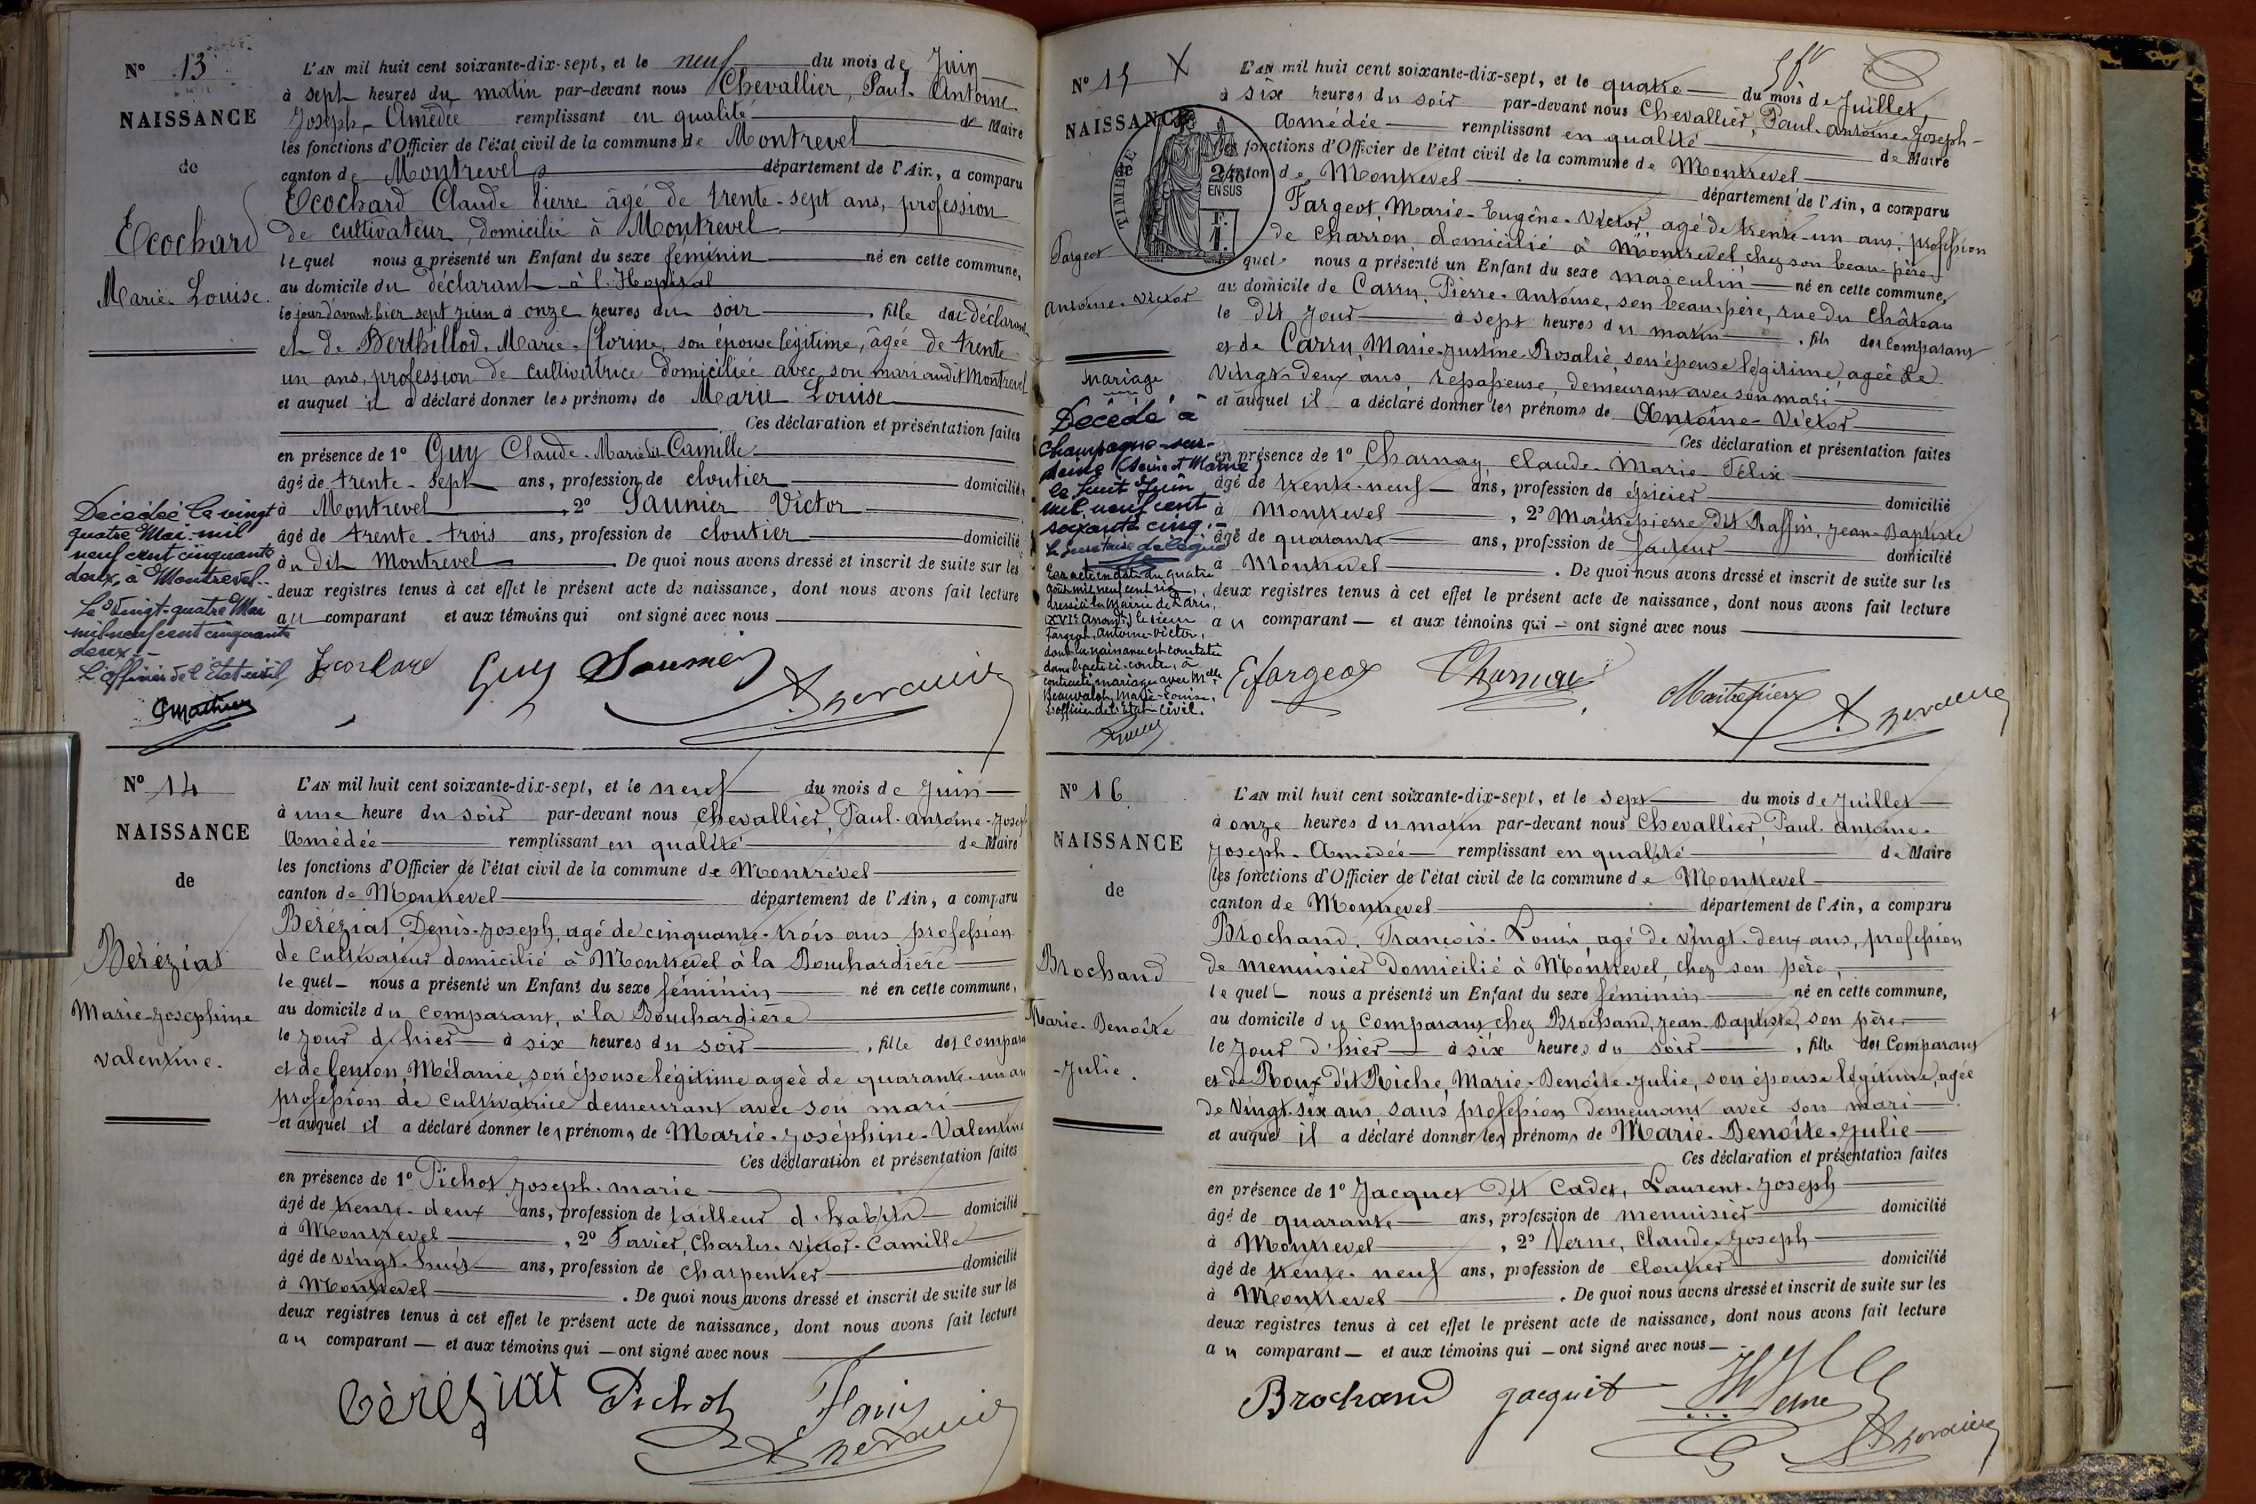 N° 13
NAISSANCE
de
Ecochard
Marie Louise.
L'AN mil huit cent soixante-dix-sept, et le neuf du mois de Juin
à sept heures du matin par-devant nous Chevallier, Paul-Antoine
Joseph-Amédée remplissant en qualité de Maire
les fonctions d'Officier de l'état civil de la commune de Montrevel
canton de Montrevel département de l'Ain, a comparu
Ecochard Claude Pierre âgé de trente-sept ans, profession
de cultivateur, domicilié à Montrevel
lequel nous a présenté un Enfant du sexe féminin né en cette commune,
au domicile du déclarant à l'Hopital
le jour d'avant-hier sept juin à onze heures du soir, fille du déclarant
et de Berthillod, Marie-Florine, son épouse légitime, âgée de trente
un ans, profession de cultivatrice domiciliée avec son mari audit Montrevel
et auquel il a déclaré donner les prénoms de Marie Louise
Ces déclaration et présentation faites
en présence de 1° Guy Claude-Marie dit Camille
âgé de trente-sept ans, profession de cloutier domicilié
à Montrevel, 2° Saunier Victor
âgé de trente-trois ans, profession de cloutier domicilié
à u dit Montrevel De quoi nous avons dressé et inscrit de suite sur les
deux registres tenus à cet effet le présent acte de naissance, dont nous avons fait lecture
au comparant et aux témoins qui ont signé avec nous
Décédée le vingt
quatre Mai mil
neuf cent cinquante
deux, à Montrevel.
Le vingt-quatre Mai
mil neuf cent cinquante
deux.
L'officier de l'Etat civil
Guy Saunier
N° 14
NAISSANCE
de
Béréziat
Marie-Joséphine
Valentine.
L'AN mil huit cent soixante-dix-sept, et le neuf du mois de Juin
à une heure du soir par-devant nous Chevallier, Paul-Antoine-Joseph
Amédée remplissant en qualité de Maire
les fonctions d'Officier de l'état civil de la commune de Montrevel
canton de Montrevel département de l'Ain, a comparu
Béréziat Denis-Joseph, agé de cinquante-trois ans profession
de cultivateur domicilié à Montrevel à la Bouchardière
lequel nous a présenté un Enfant du sexe féminin né en cette commune,
au domicile du Comparant, à la Bouchardière
le jour d'hier à six heures du soir, fille des Compara
et de Penton, Mélanie, son épouse légitime agée de quarante-un an
profession de cultivatrice demeurant avec son mari
et auquel il a déclaré donner les prénoms de Marie-Joséphine-Valentine
Ces déclaration et présentation faites
en présence de 1° Pichot Joseph-marie
âgé de trente-deux ans, profession de tailleur d'habits domicilié
à Montrevel, 2° Favier, Charles-Victor-Camille
âgé de vingt-huit ans, profession de charpentier domicilié
à Montrevel. De quoi nous avons dressé et inscrit de suite sur les
deux registres tenus à cet effet le présent acte de naissance, dont nous avons fait lecture
au comparant et aux témoins qui ont signé avec nous
Béréziat Pichot
N° 15
NAISSANCE
de
TIMBRE
2/10 EN SUS
Fargeot
Antoine-Victor
L'AN mil huit cent soixante-dix-sept, et le quatre du mois de Juillet,
à six heures du soir par-devant nous Chevallier, Paul-Antoine-Joseph-
Amédée remplissant en qualité de Maire
les fonctions d'Officier de l'état civil de la commune de Montrevel
canton de Montrevel département de l'Ain, a comparu
Fargeot, Marie-Eugène-Victor, agé de trente-un ans, profession
de charron, domicilié à Montrevel chez son beau-père,
quel nous a présenté un Enfant du sexe masculin né en cette commune,
au domicile de Carru, Pierre-Antoine, son beau-père, rue du Château
le dit jour à sept heures du matin, fils des Comparant
et de Carru, Marie-Justine-Rosalie, son épouse légitime, agée de
vingt-deux ans, repasseuse, demeurant avec son mari
et auquel il a déclaré donner les prénoms de Antoine-Victor
Ces déclaration et présentation faites
en présence de 1° Charnay, Claude-Marie Félix
âgé de trente-neuf ans, profession de épicier domicilié
à Montrevel, 2° Maitrepierre dit Raffin, Jean-Baptiste
âgé de quarante ans, profession de facteur domicilié
à Montrevel. De quoi nous avons dressé et inscrit de suite sur les
deux registres tenus à cet effet le présent acte de naissance, dont nous avons fait lecture
au comparant et aux témoins qui ont signé avec nous
mariage
Décédé à
Champagne-sur-
Seine (Seine et Marne)
le huit Juin
mil neuf cent
soixante cinq.
Le secrétaire délégué
Par acte en date du quatre
août mil neuf cent six,
dressé à la Mairie de Paris,
(XVIe Arrondt) le sieur
Fargeot, Antoine-Victor,
dont la naissance est constatée
dans l'acte ci-contre, a
contracté mariage avec Melle
Beauvalot, Marie-Louise.
L'officier de l'état-civil.
Efargeot Charnay Maitrepierre
N° 16
NAISSANCE
de
Brochand
Marie-Benoîte
-Julie.
L'AN mil huit cent soixante-dix-sept, et le sept du mois de Juillet
à onze heures du matin par-devant nous Chevallier Paul Antoine-
Joseph-Amédée remplissant en qualité de Maire
les fonctions d'Officier de l'état civil de la commune de Montrevel
canton de Montrevel département de l'Ain, a comparu
Brochand, François-Louis agé de vingt-deux ans, profession
de menuisier domicilié à Montrevel, chez son père,
lequel nous a présenté un Enfant du sexe féminin né en cette commune,
au domicile du Comparant chez Brochand, Jean-Baptiste, son père
le jour d'hier à six heures du soir, fille des Comparant
et de Roux dit Riche, Marie-Benoîte-Julie, son épouse légitime, agée
de vingt-six ans sans profession demeurant avec son mari
et auquel il a déclaré donner les prénoms de Marie-Benoîte-Julie
Ces déclaration et présentation faites
en présence de 1° Jacquet dit Cadet, Laurent-Joseph
âgé de quarante ans, profession de menuisier domicilié
à Montrevel, 2° Verne, Claude-Joseph
âgé de trente-neuf ans, profession de cloutier domicilié
à Montrevel. De quoi nous avons dressé et inscrit de suite sur les
deux registres tenus à cet effet le présent acte de naissance, dont nous avons fait lecture
au comparant et aux témoins qui ont signé avec nous
Brochand Jacquet Verne